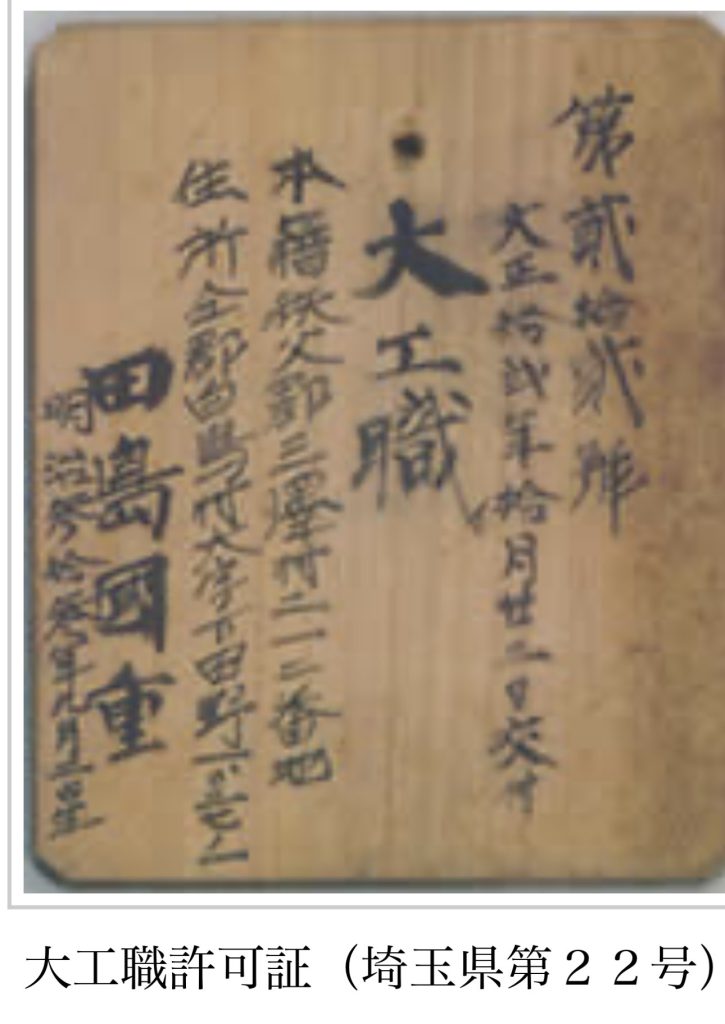 第貳拾貳号
大正拾貳年拾月廿二日交付
大工職
本籍秩父郡三澤村二一二番地
住所仝郡白鳥村大字下田野
田島國重
明治参拾年九月生
大工職許可証（埼玉県第２２号）